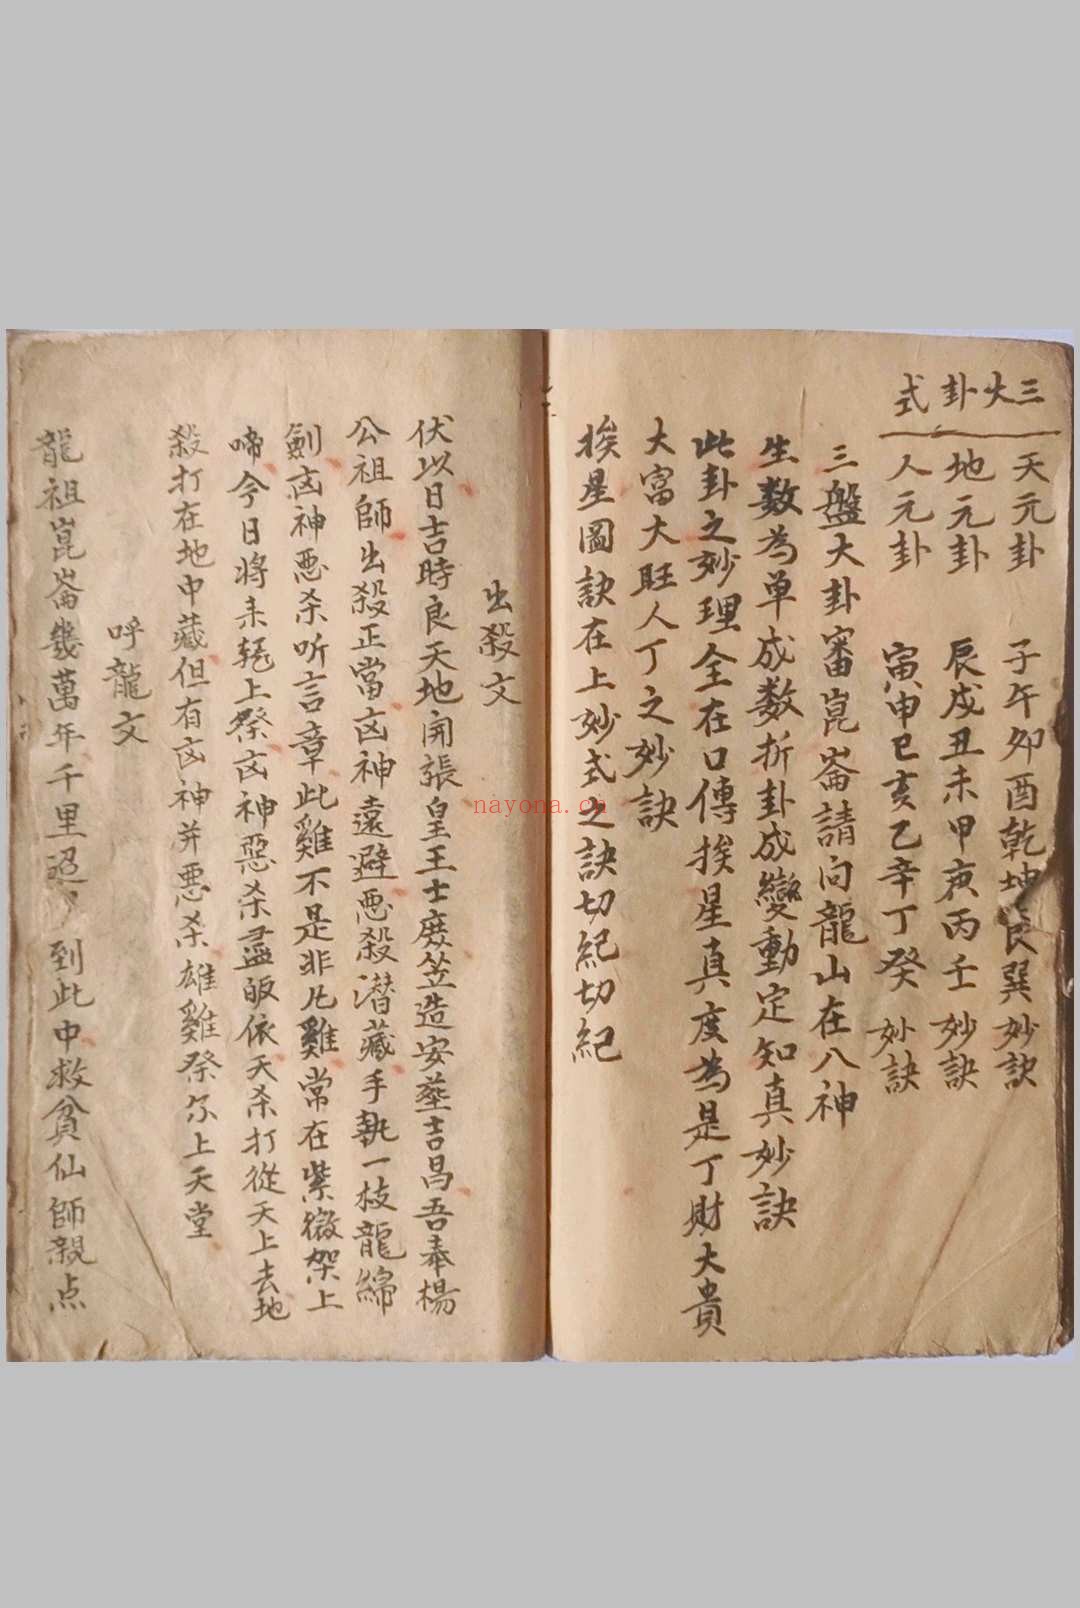 三大卦式
天元卦 子午卯酉乾坤艮巽妙訣
地元卦 辰戌丑未甲庚丙壬妙訣
人元卦 寅申巳亥乙辛丁癸妙訣
三盤大卦審崑崙請向龍山在八神
生数為单成数折卦成變動定知真妙訣
此卦之妙理全在口傳挨星真度為是丁財大貴
大富大旺人丁之妙訣
挨星圖訣在上妙式之訣切紀切紀
出殺文
伏以日吉時良天地開張皇王士庶竺造安塟吉昌吾奉楊
公祖師出殺正當凶神遠避悪殺潜藏手執一枝龍綿
劍凶神悪杀听言章此雞不是非凡雞常在紫微架上
啼今日將来上祭凶神惡杀盡皈依天杀打從天上去地
殺打在地中藏但有凶神并悪杀雄雞祭尔上天堂
呼龍文
龍祖崑崙幾萬年千里迢々到此中救貧仙師親点
nayona.cn